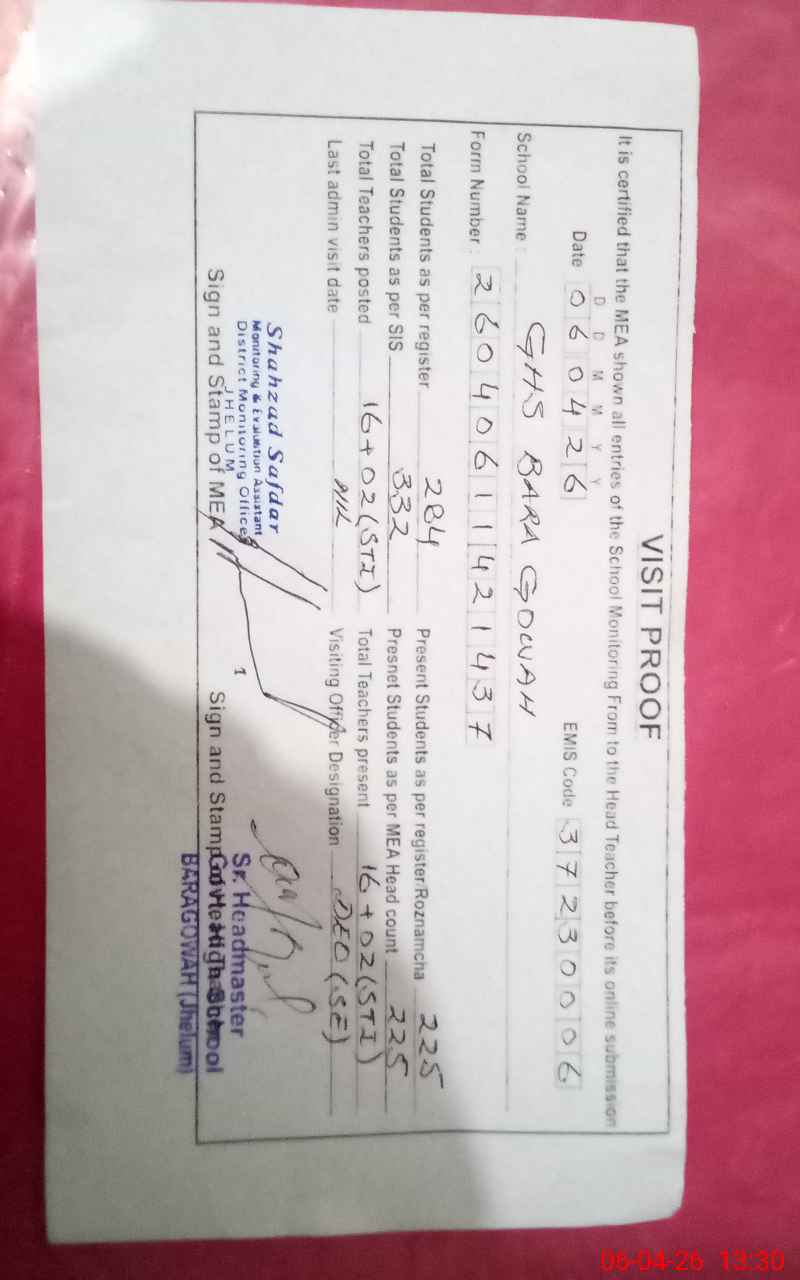 VISIT PROOF
It is certified that the MEA shown all entries of the School Monitoring From to the Head Teacher before its online submission
D D M M Y Y
Date 0 6 0 4 2 6 EMIS Code 3 7 2 3 0 0 0 6
School Name : GHS BARA GOWAH
Form Number : 2 6 0 4 0 6 1 1 4 2 1 4 3 7
Total Students as per register 284 Present Students as per register/Roznamcha 225
Total Students as per SIS 332 Presnet Students as per MEA Head count 225
Total Teachers posted 16+02(STI) Total Teachers present 16+02(STI)
Last admin visit date Visiting Officer Designation DEO (SE)
Shahzad Safdar
Monitoring & Evaluation Assistant
District Monitoring Officer
JHELUM
Sign and Stamp of MEA
1
Sr. Headmaster
Sign and Stamp of Head Teacher
Govt. High School
BARAGOWAH (Jhelum)
06-04-26 13:30